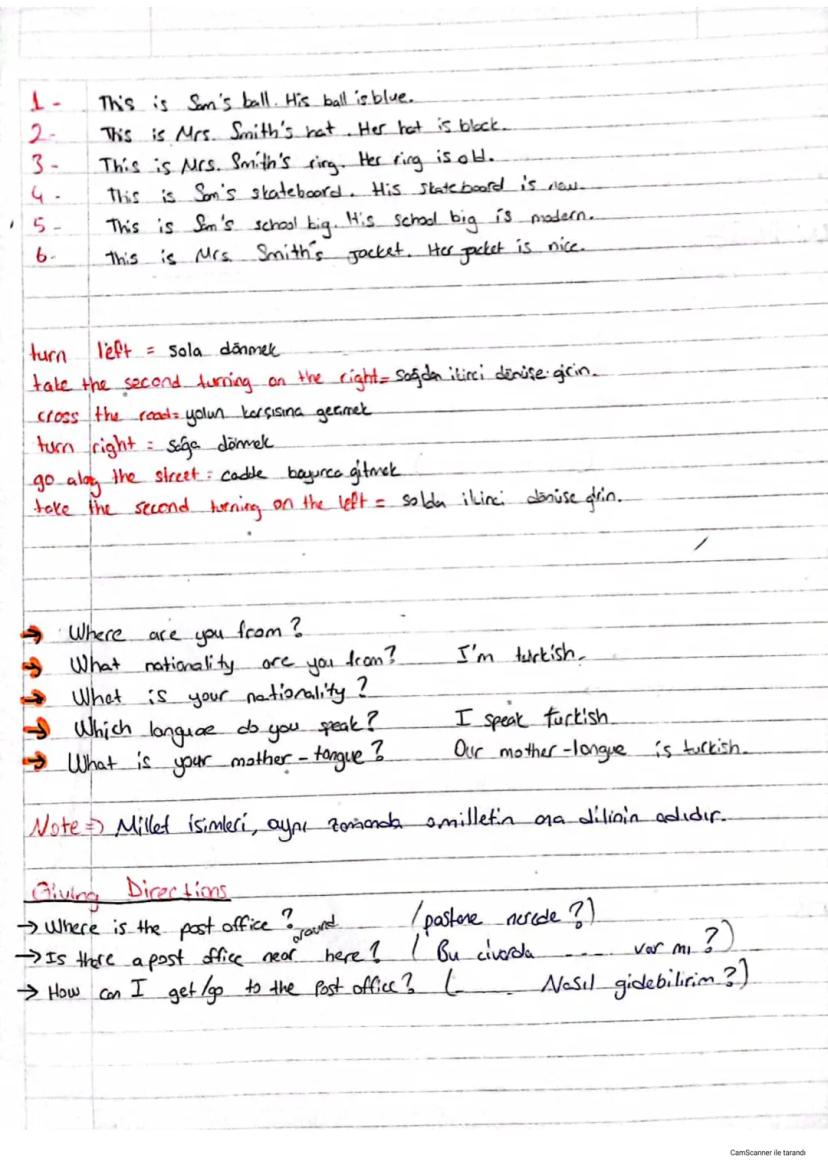 1- This is Sam's ball. His ball is blue.
2- This is Mrs. Smith's hat. Her hat is black.
3- This is Mrs. Smith's ring. Her ring is old.
4- This is Sam's skateboard. His skateboard is new.
5- This is Sam's school big. His school big is modern.
6- This is Mrs. Smith's jacket. Her jacket is nice.
turn left = sola dönmek
take the second turning on the right = sağdan ikinci dönüşe girin.
cross the road = yolun karşısına geçmek
turn right = sağa dönmek
go along the street : cadde boyunca gitmek
take the second turning on the left = soldan ikinci dönüşe girin.
→ Where are you from?
→ What nationality are you from? I'm turkish.
→ What is your nationality?
→ Which languae do you speak? I speak turkish
→ What is your mother-tongue? Our mother-longue is turkish.
Note => Millet isimleri, aynı zamanda o milletin ana dilinin adıdır.
Giving Directions
→ Where is the post office? (postane nerede?)
around
→ Is there a post office near here? ( Bu civarda .... var mı?)
→ How can I get/go to the Post office? (........ Nasıl gidebilirim?)
CamScanner ile tarandı